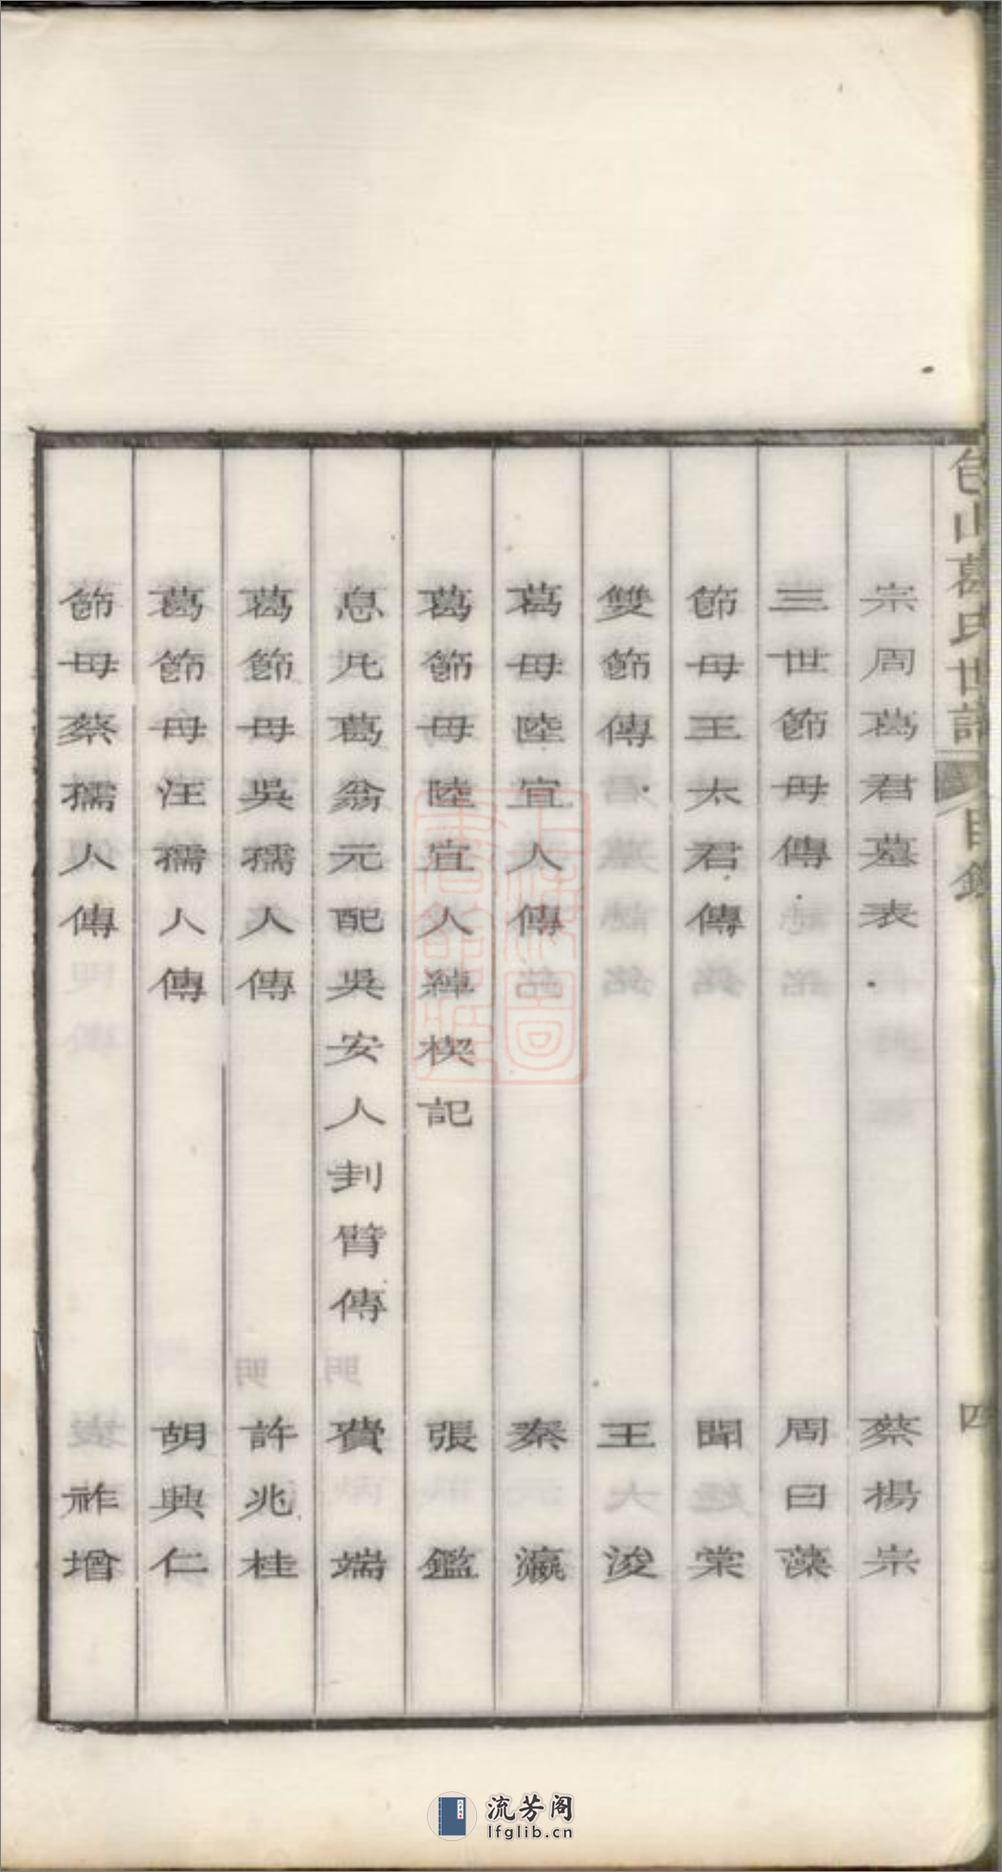 包山葛氏世譜 目錄 四
宗周葛君墓表 蔡楊宗
三世節母傳 周曰藻
節母王太君傳 聞棠
雙節傳 王浚
葛母陸宜人傳 秦瀛
葛節母陸宜人綽楔記 張鑑
息凡葛翁元配吳安人刲臂傳 費端
葛節母吳孺人傳 許兆桂
葛節母汪孺人傳 胡興仁
節母蔡孺人傳 祚增
上海圖書館藏
流芳阁
lfglib.cn